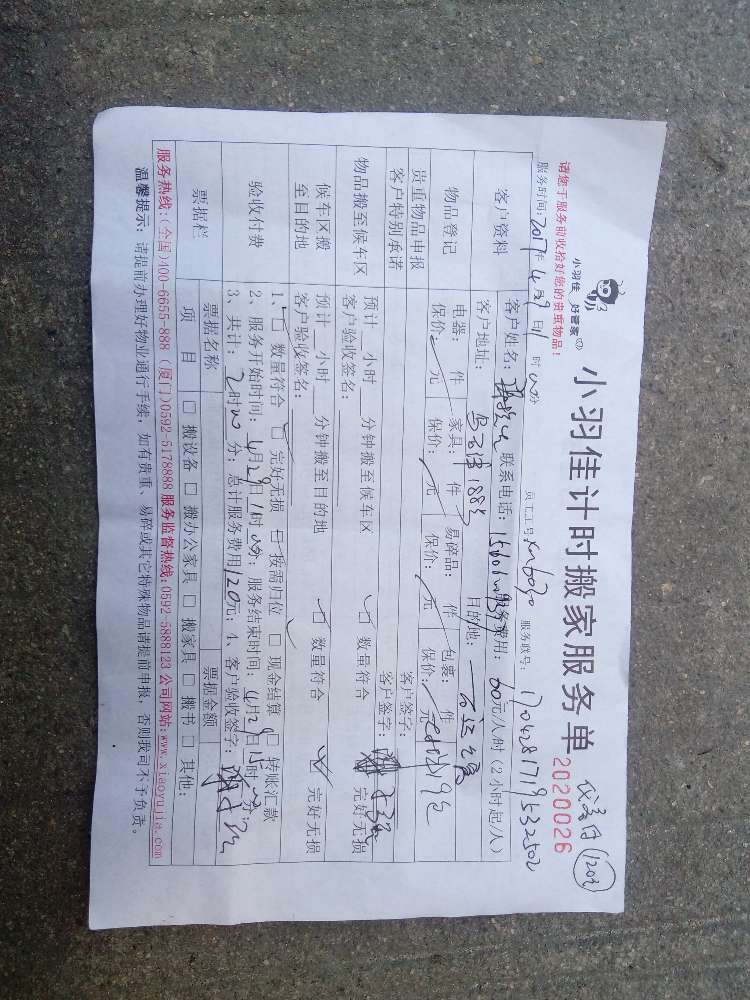 小羽佳 好管家
小羽佳计时搬家服务单
1203
请您于服务前收拾好您的贵重物品!
2020026
服务时间:2017年4月29日11时00分 员工工号: 服务联号:170428171953250
客户资料
客户姓名: 联系电话: 服务费用:60元/人/时(2小时起/人)
客户地址: 188号 目的地:
物品登记
电器: 件 家具: 件 易碎品: 件 包裹: 件
保价: 元 保价: 元 保价: 元 保价: 元
贵重物品申报 客户签字:
客户特别承诺 客户签字:
物品搬至候车区
预计 小时 分钟搬至候车区 □ 数量符合 完好无损
客户验收签名:
候车区搬至目的地
预计 小时 分钟搬至目的地 □ 数量符合 □ 完好无损
客户验收签名:
验收付费
1、□ 数量符合 □ 完好无损 □ 按需归位 □ 现金结算 □ 转账汇款
2、服务开始时间:4月29日11时00分;服务结束时间:4月29日 时 分;
3、共计:2时00分;总计服务费用120元;4、客户验收签字:
票据栏
票据名称 票据金额
项目 □ 搬设备 □ 搬办公家具 □ 搬家具 □ 搬书 □ 其他:
服务热线:(全国)400-6655-888 (厦门)0592-5178888 服务监督热线:0592-5888123 公司网站:www.xiaoyujia.com
温馨提示:请提前办理好物业通行手续,如有贵重、易碎或其它特殊物品请提前申报,否则我司不予负责。